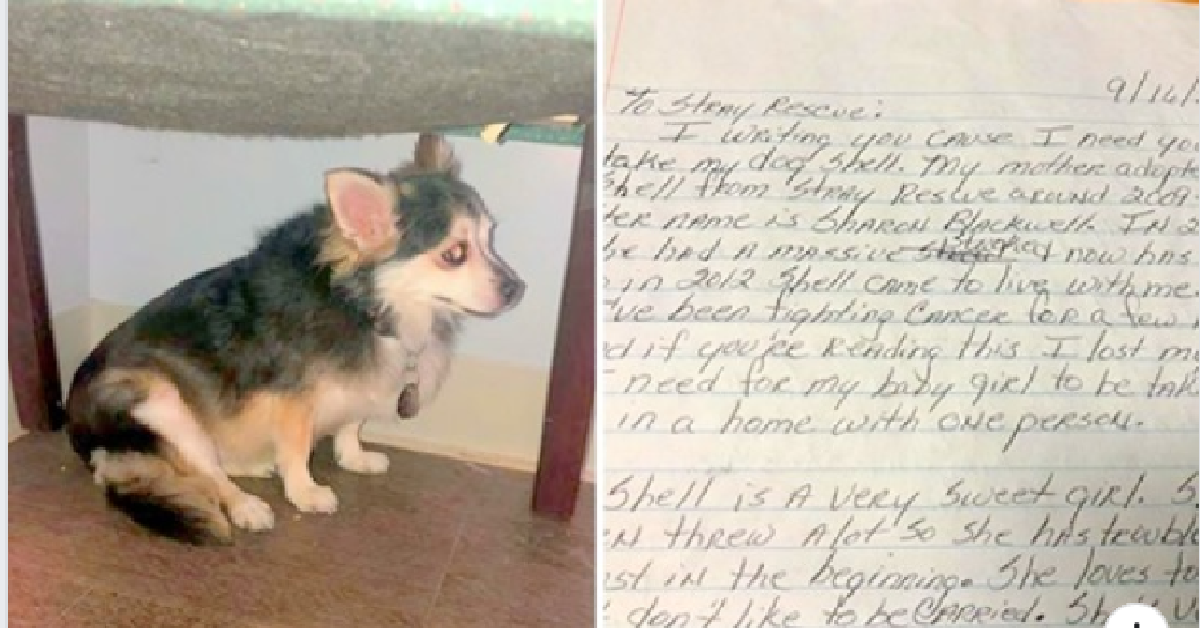 9/14/
To Stray Rescue:
I writing you cause I need you
take my dog Shell. My mother adopte
Shell from Stray Rescue around 2009
Her name is Sharon Blackwell. IN 2
he had A massive now has
in 2012 Shell came to live with me
I've been fighting Cancer for a few
d if you're Reading this I lost m
I need for my baby girl to be tak
in a home with one person.
Shell is A very sweet girl. S
EN threw Alot so she has trouble
st in the beginning. She loves to
don't like to be CARRied. She's